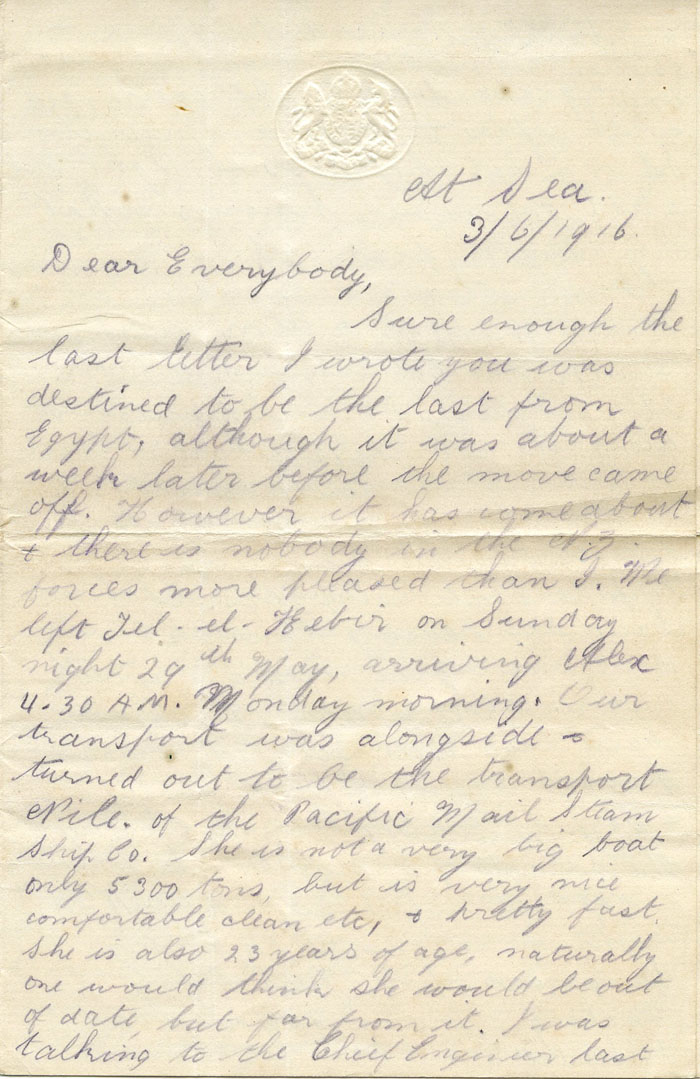 At Sea.
3/6/1916.
Dear Everybody,
Sure enough the
last letter I wrote you was
destined to be the last from
Egypt, although it was about a
week later before the move came
off. However it has come about
& there is nobody in the N.Z.
forces more pleased than I. We
left Tel-el-Kebir on Sunday
night 29th May, arriving Alex
4-30 A.M. Monday morning. Our
transport was alongside &
turned out to be the transport
Nile. of the Pacific Mail Steam
Ship Co. She is not a very big boat
only 5300 tons, but is very nice
comfortable clean etc, & pretty fast.
She is also 23 years of age, naturally
one would think she would be out
of date, but far from it. I was
talking to the Chief Engineer last